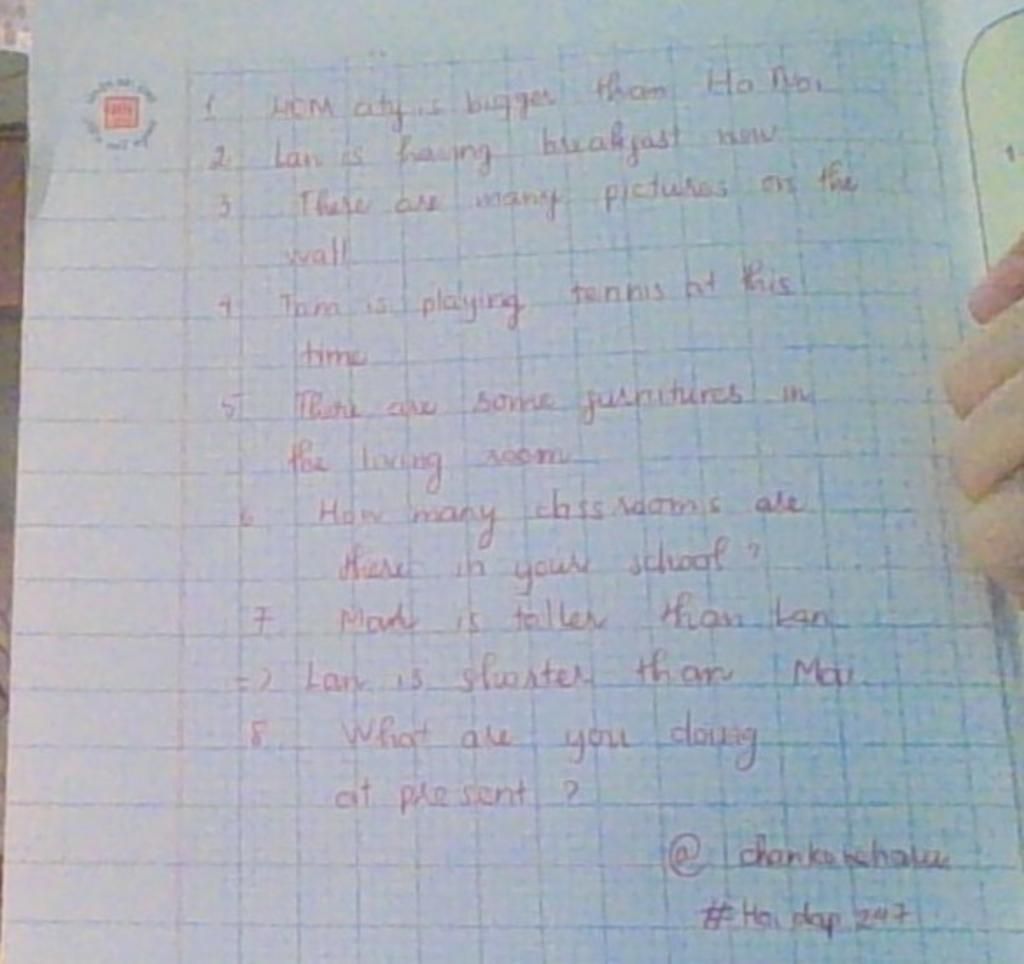 1 HCM city is bigger than Ha Noi
2 Lan is having breakfast now
3 There are many pictures on the
wall
4 Tam is playing tennis at this
time
5 There are some furnitures in
the living room
6 How many classrooms are
there in your school ?
7 is taller than Lan
=> Lan is shorter than Mai
8 What are you doing
at present ?
@
# Hoi dap 247